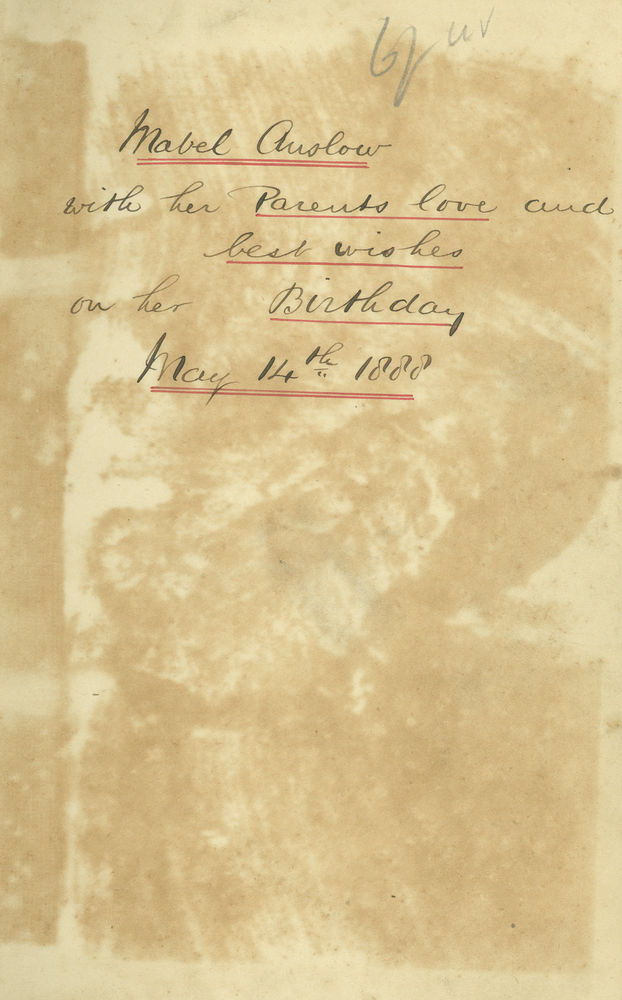 Mabel Anslow
with her Parents love and
best wishes
on her Birthday
May 14th 1888